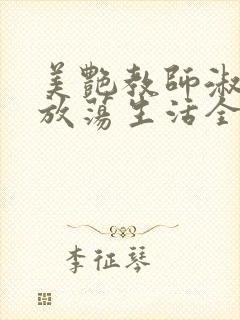 美艷教師淑
放蕩生活全
李征琴